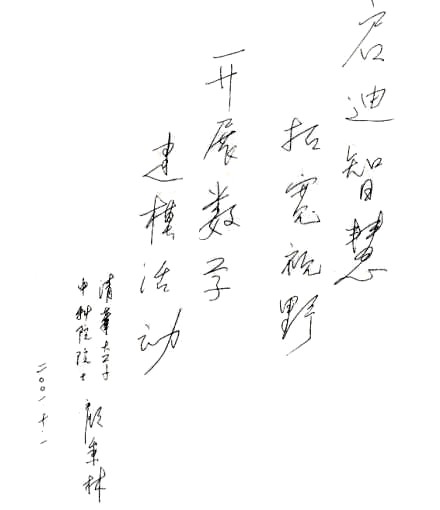 启迪智慧
拓宽视野
开展数学
建模活动
清华大学
中科院院士 顾秉林
二〇〇一.十.一